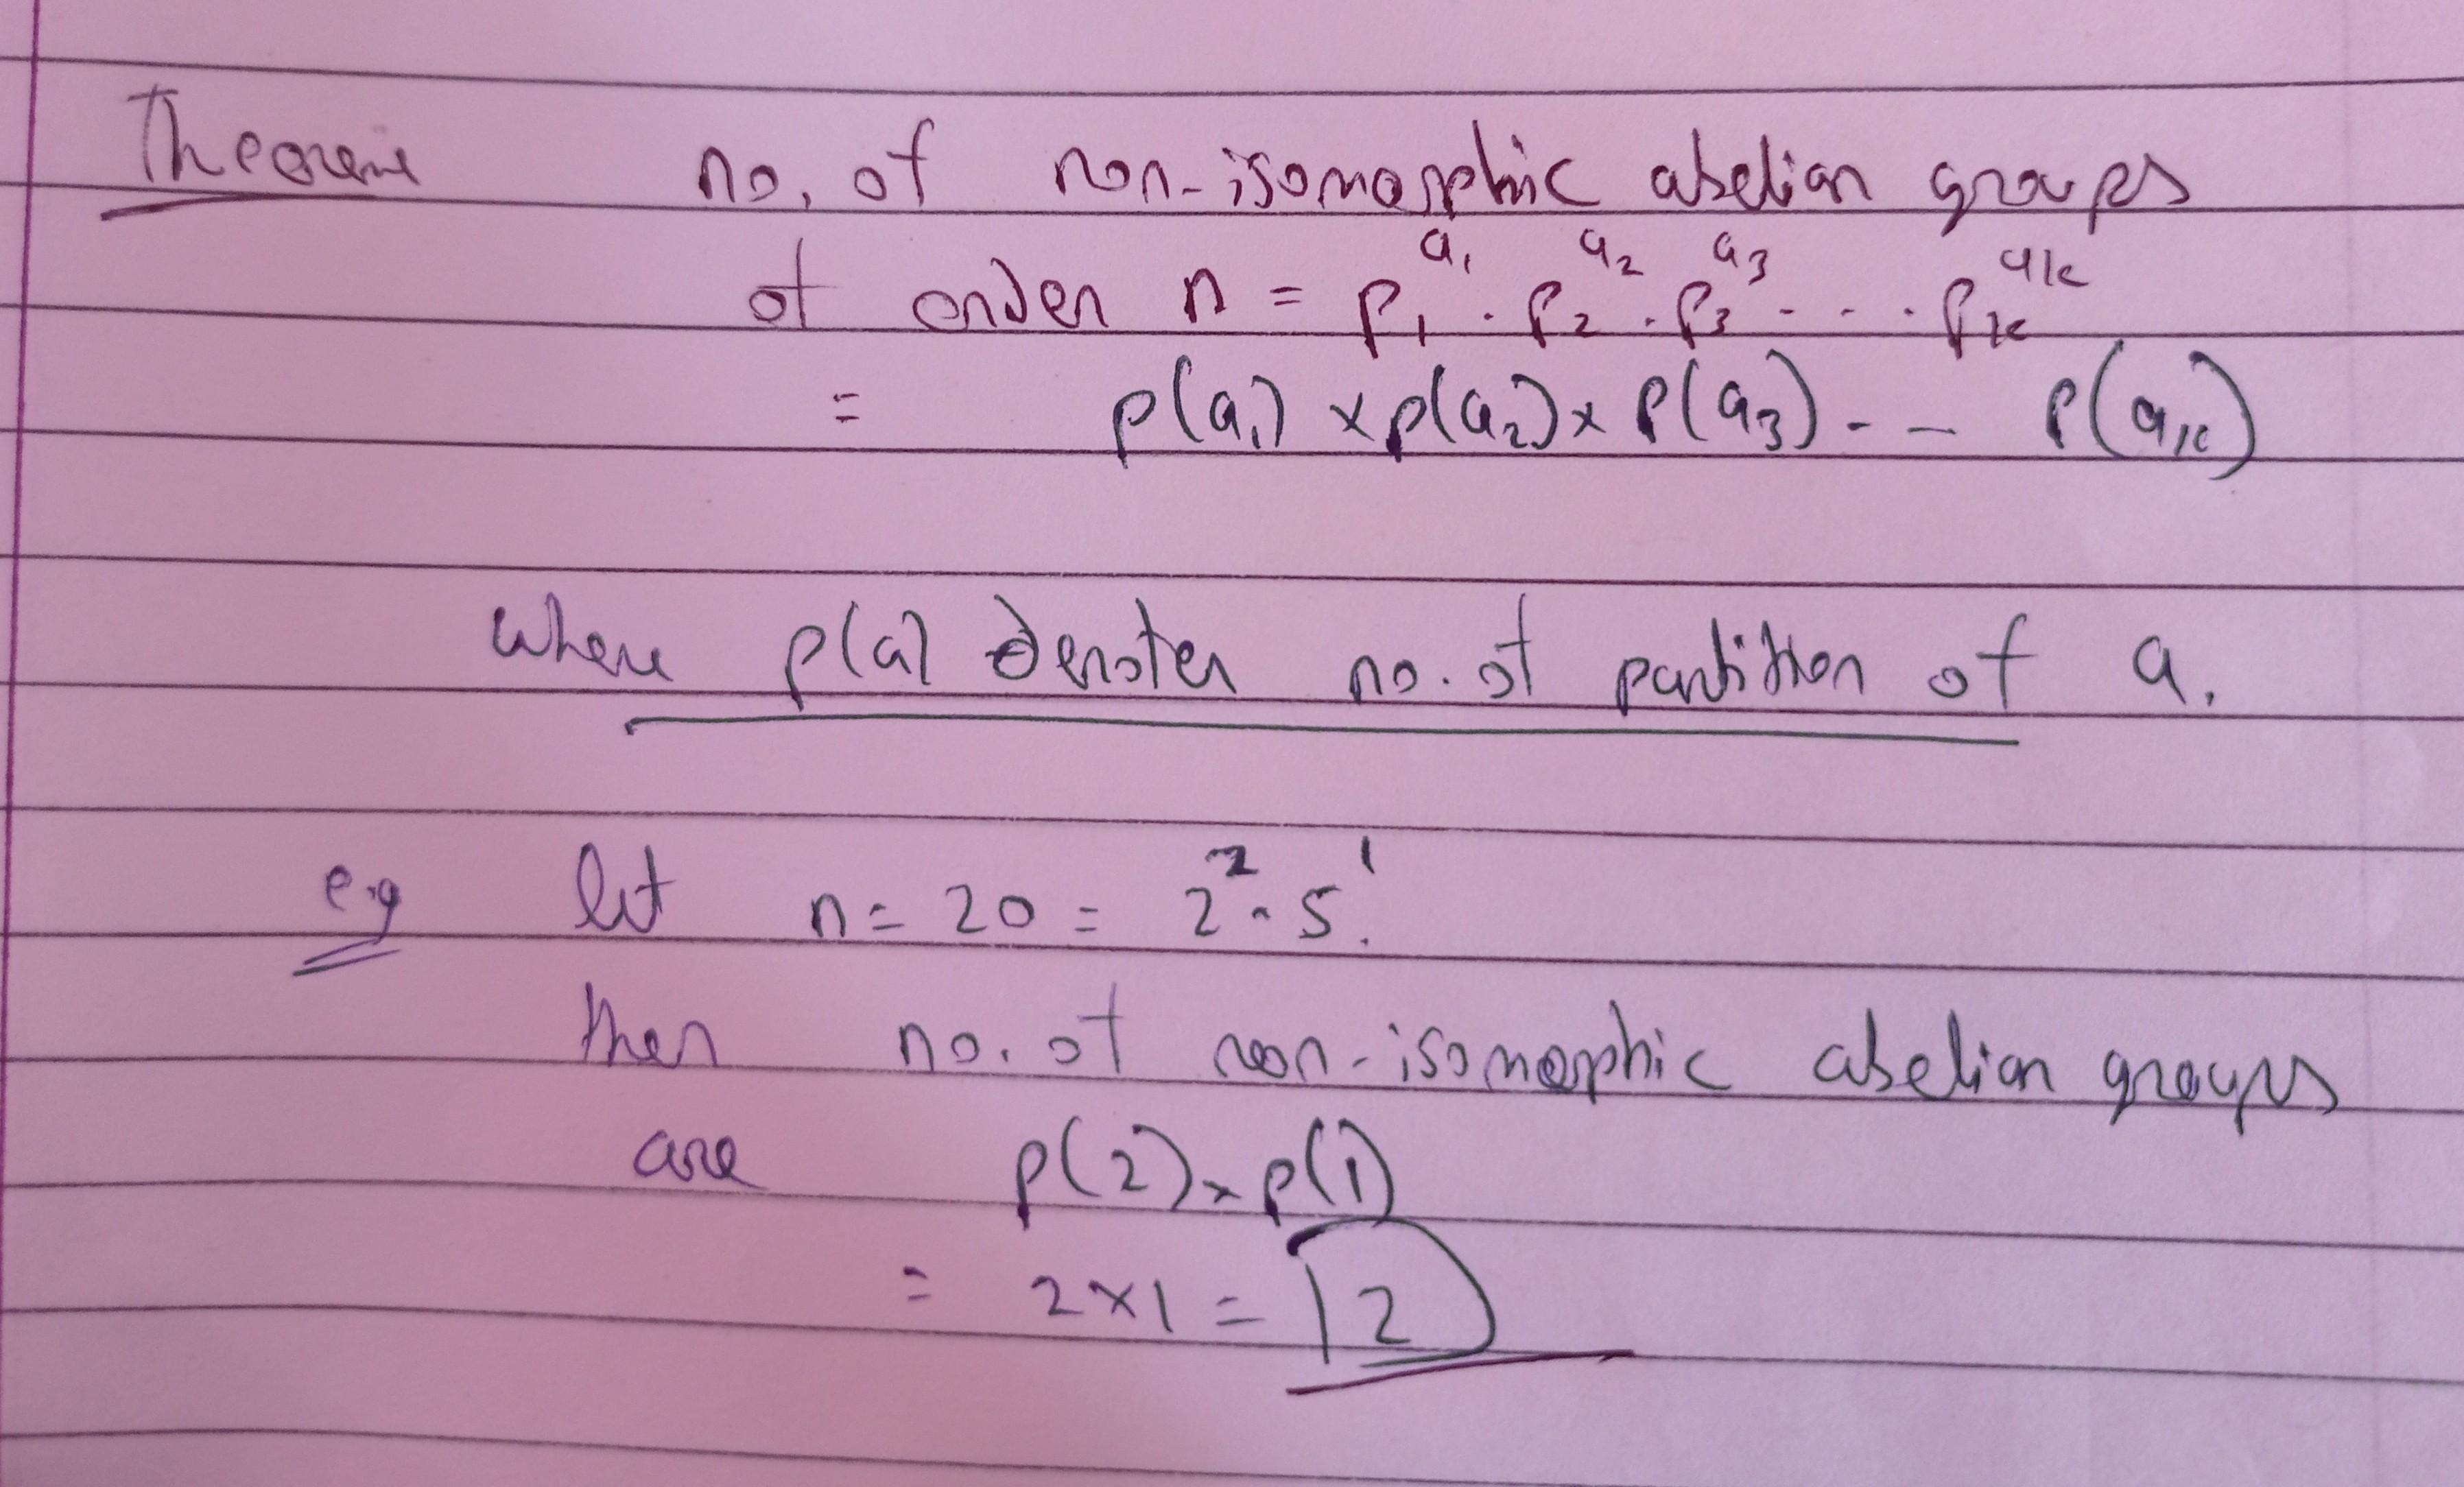 Theorem no. of non-isomorphic abelian groups
of order n = p₁^a₁ . p₂^a₂ . p₃^a₃ - . . . pₖ^aₖ
= p(a₁) × p(a₂) × p(a₃) - - p(aₖ)
where p(a) denotes no. of partition of a.
e.g let n = 20 = 2² . 5¹.
then no. of non-isomorphic abelian groups
are p(2) × p(1)
= 2 × 1 = 2